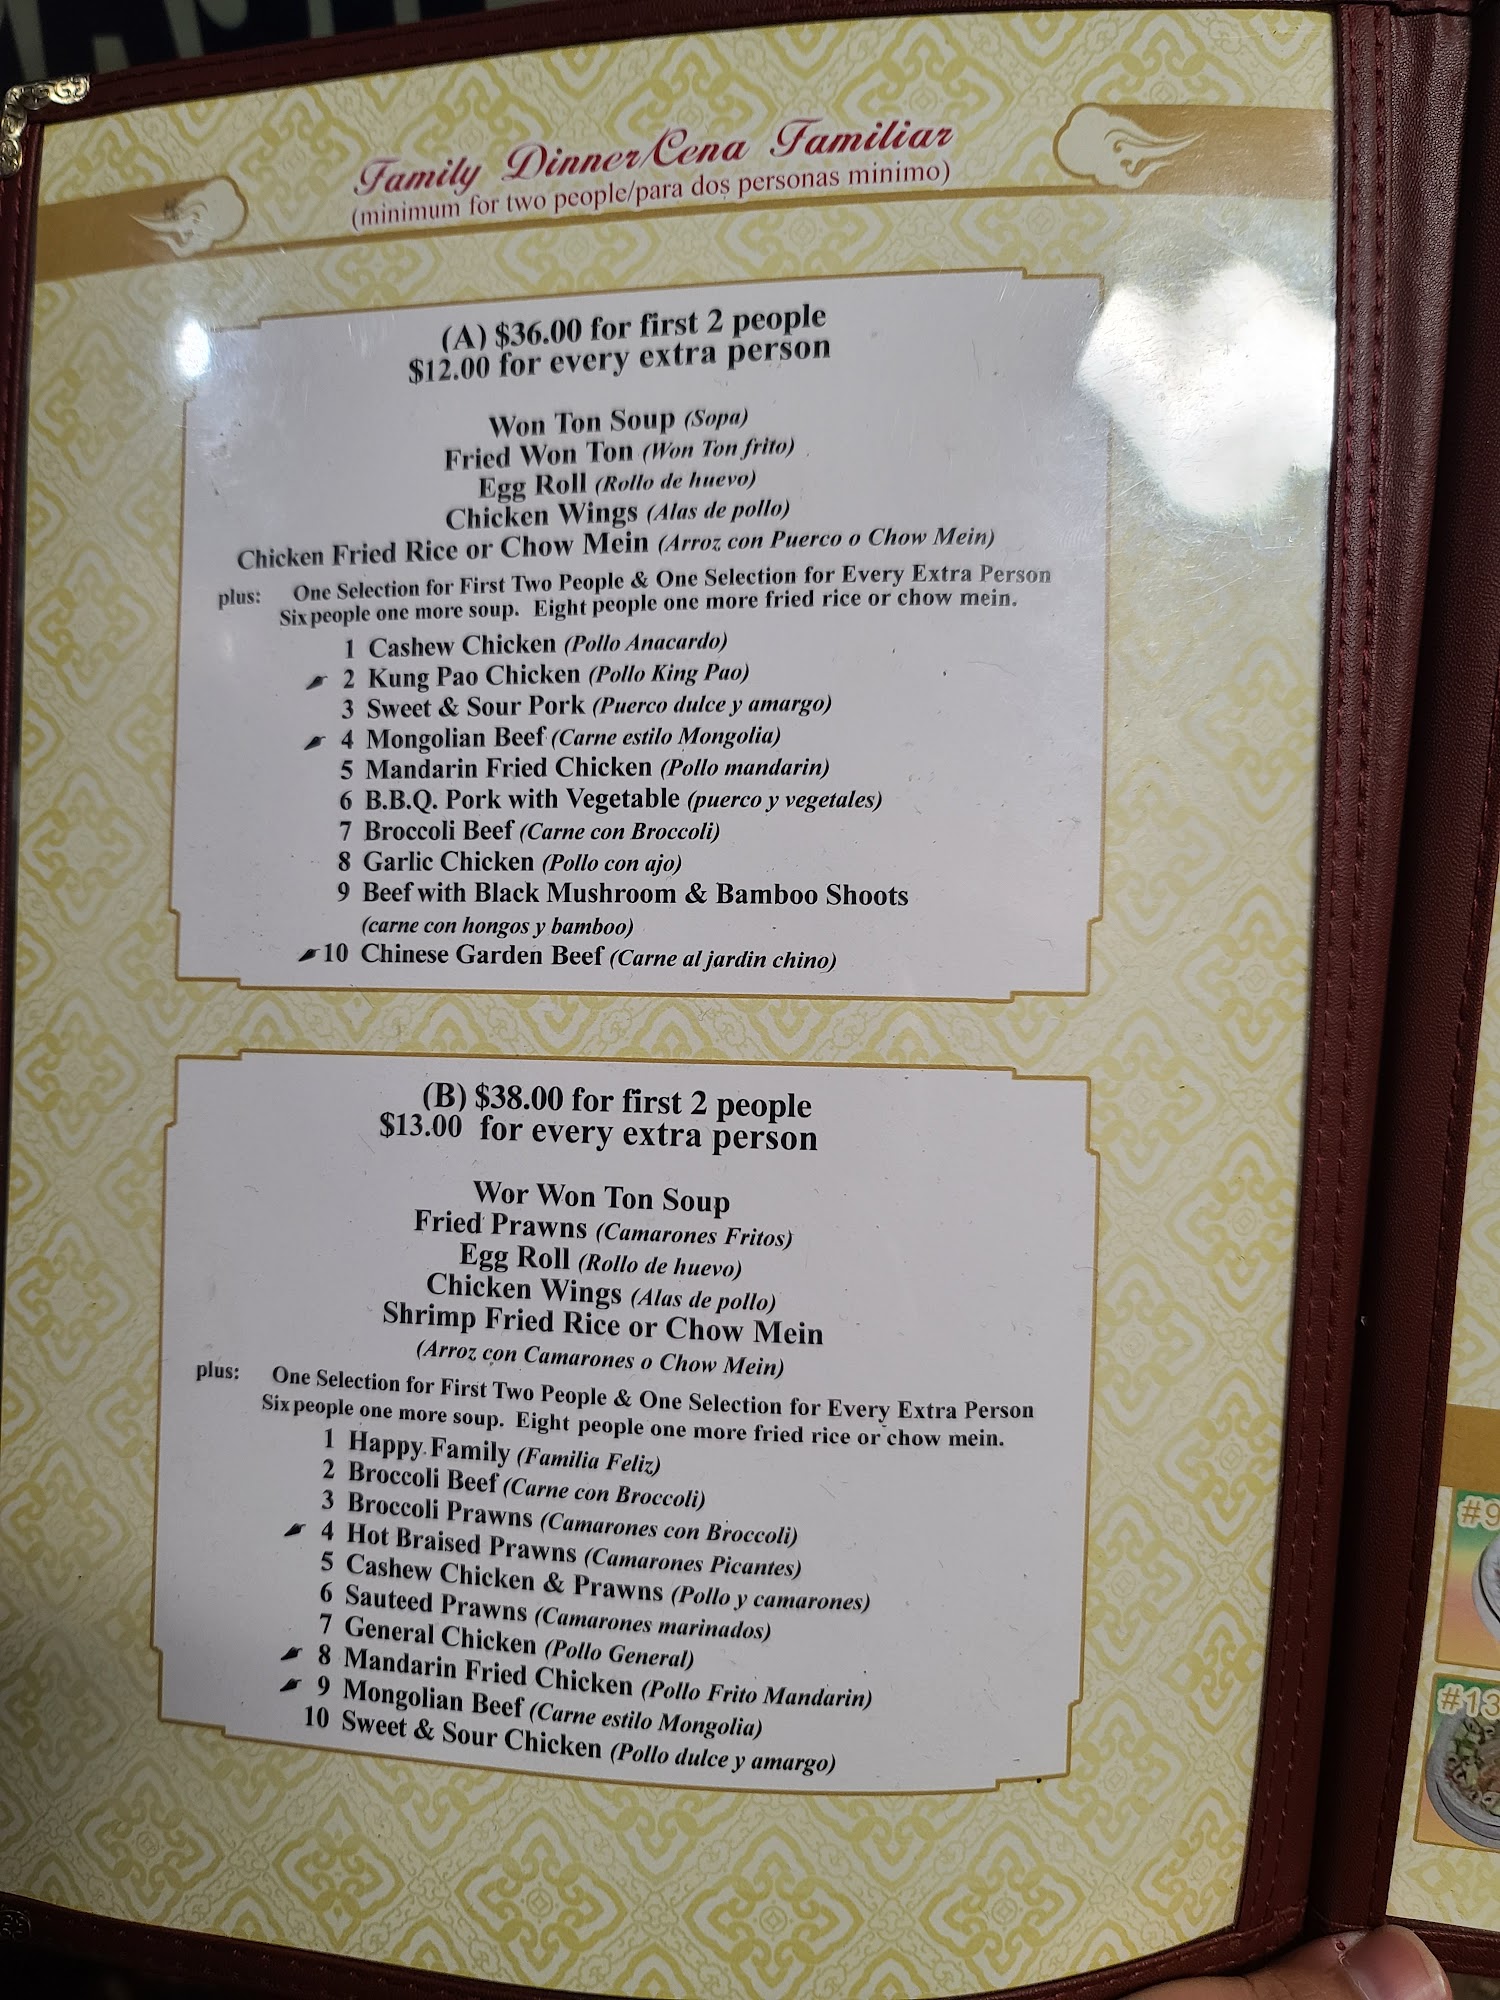 Family Dinner/Cena Familiar
(minimum for two people/para dos personas minimo)
(A) $36.00 for first 2 people
$12.00 for every extra person
Won Ton Soup (Sopa)
Fried Won Ton (Won Ton frito)
Egg Roll (Rollo de huevo)
Chicken Wings (Alas de pollo)
Chicken Fried Rice or Chow Mein (Arroz con Puerco o Chow Mein)
plus: One Selection for First Two People & One Selection for Every Extra Person
Six people one more soup. Eight people one more fried rice or chow mein.
1 Cashew Chicken (Pollo Anacardo)
2 Kung Pao Chicken (Pollo King Pao)
3 Sweet & Sour Pork (Puerco dulce y amargo)
4 Mongolian Beef (Carne estilo Mongolia)
5 Mandarin Fried Chicken (Pollo mandarin)
6 B.B.Q. Pork with Vegetable (puerco y vegetales)
7 Broccoli Beef (Carne con Broccoli)
8 Garlic Chicken (Pollo con ajo)
9 Beef with Black Mushroom & Bamboo Shoots
(carne con hongos y bamboo)
10 Chinese Garden Beef (Carne al jardin chino)
(B) $38.00 for first 2 people
$13.00 for every extra person
Wor Won Ton Soup
Fried Prawns (Camarones Fritos)
Egg Roll (Rollo de huevo)
Chicken Wings (Alas de pollo)
Shrimp Fried Rice or Chow Mein
(Arroz con Camarones o Chow Mein)
plus: One Selection for First Two People & One Selection for Every Extra Person
Six people one more soup. Eight people one more fried rice or chow mein.
1 Happy Family (Familia Feliz)
2 Broccoli Beef (Carne con Broccoli)
3 Broccoli Prawns (Camarones con Broccoli)
4 Hot Braised Prawns (Camarones Picantes)
5 Cashew Chicken & Prawns (Pollo y camarones)
6 Sauteed Prawns (Camarones marinados)
7 General Chicken (Pollo General)
8 Mandarin Fried Chicken (Pollo Frito Mandarin)
9 Mongolian Beef (Carne estilo Mongolia)
10 Sweet & Sour Chicken (Pollo dulce y amargo)
#9
#13